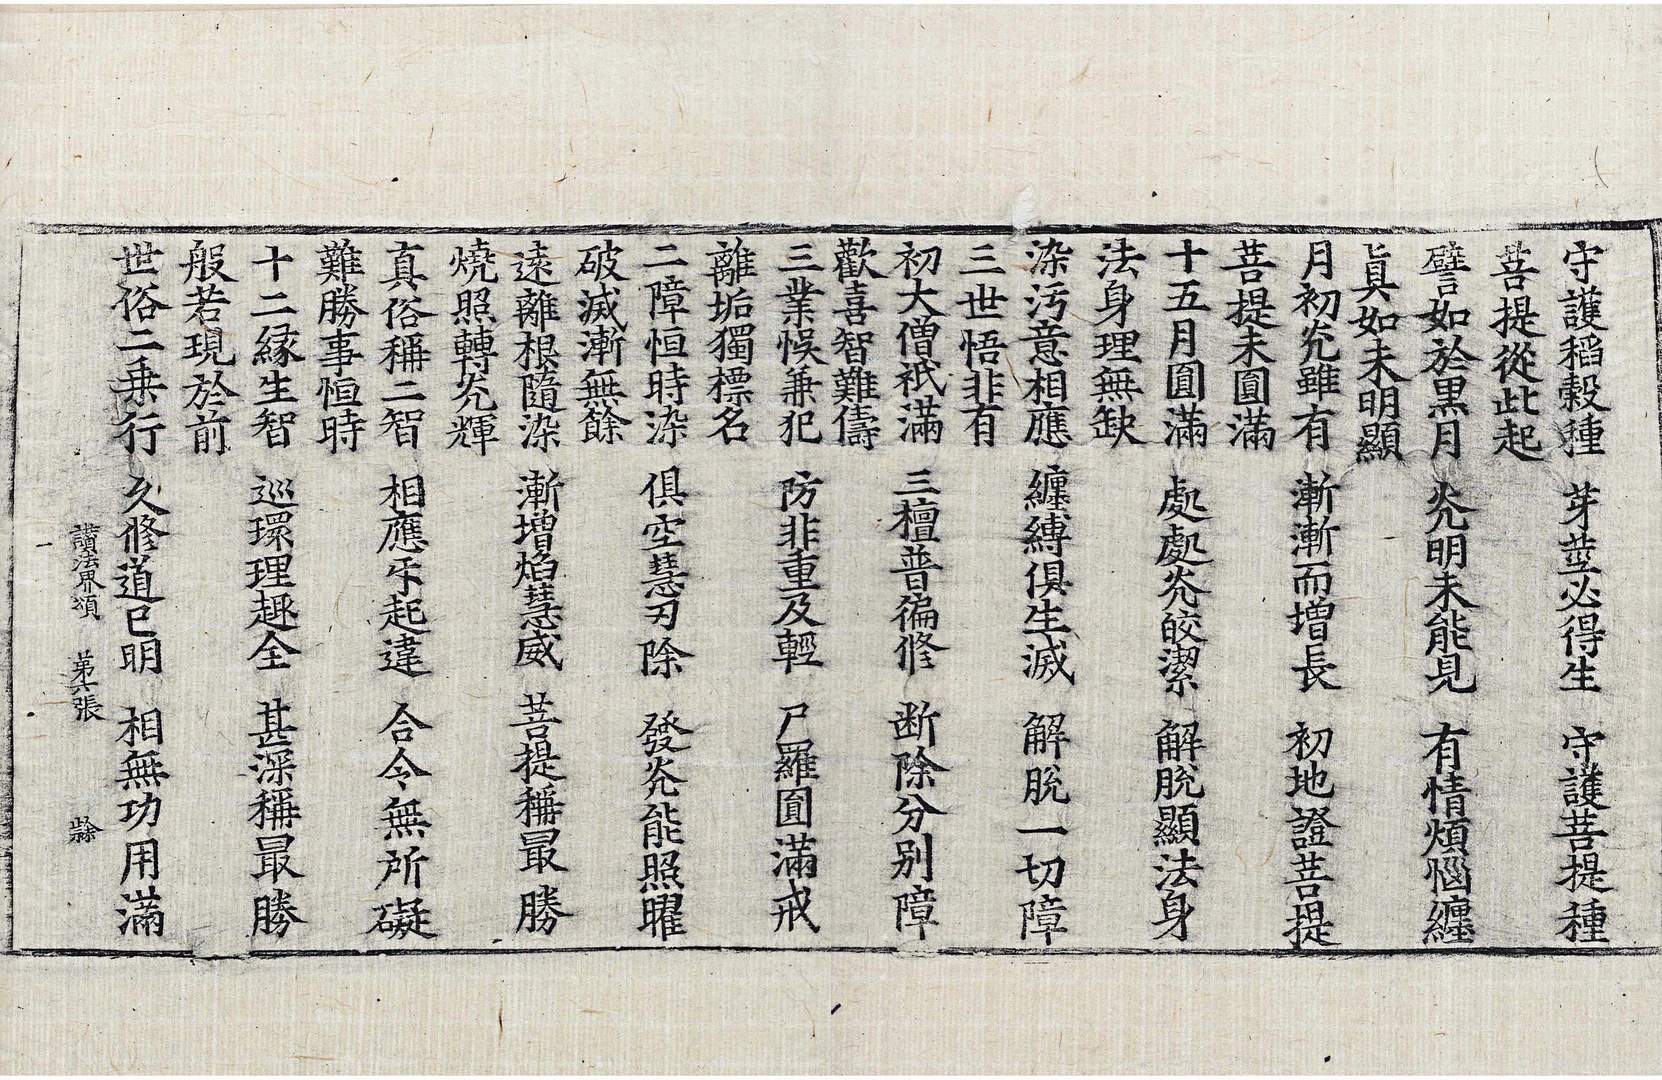 守護稻穀種　芽莖必得生　守護菩提種
菩提從此起
譬如於黒月　灮明未能見　有情煩惱纏
眞如未明顯
月初灮雖有　漸漸而增長　初地證菩提
菩提未圓滿
十五月圓滿　處處灮皎潔　解脫顯法身
法身理無缺
染污意相應　纏縛俱生滅　解脫一切障
三世悟非有
初大僧祇滿　三檀普徧修　断除分別障
歡喜智難儔
三業悞兼犯　防非重及輕　尸羅圓滿戒
離垢獨標名
二障恒時染　俱空慧刃除　發灮能照曜
破滅漸無餘
遠離根隨染　漸增焰慧威　菩提稱最勝
燒照轉灮輝
真俗稱二智　相應乐起違　合令無所礙
難勝事恒時
十二緣生智　巡環理趣全　甚深稱最勝
般若現於前
世俗二乗行　久修道已明　相無功用滿
讃法界頌　第六張